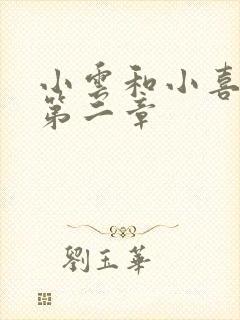 小雲和小喜
第二章
劉玉華